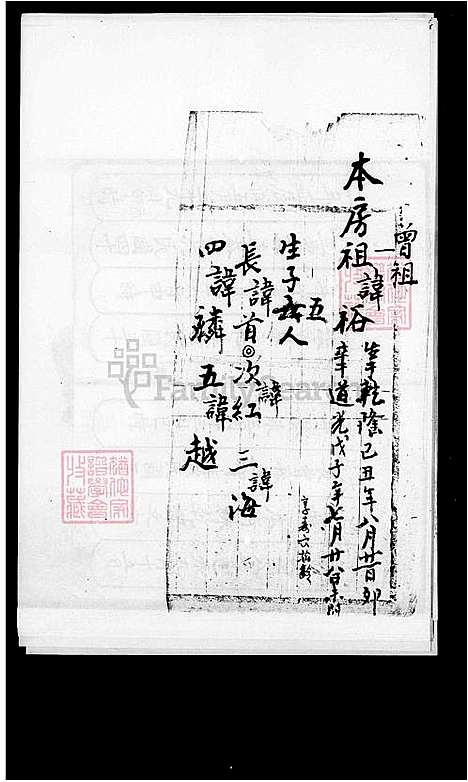 曾祖
本房祖諱裕
生乾隆己丑年八月廿日卯
卒道光戊子年七月廿八日未時
享壽六拾齡
生子五人
長諱首 次諱紅 三諱海
四諱 五諱越
FamilySearch